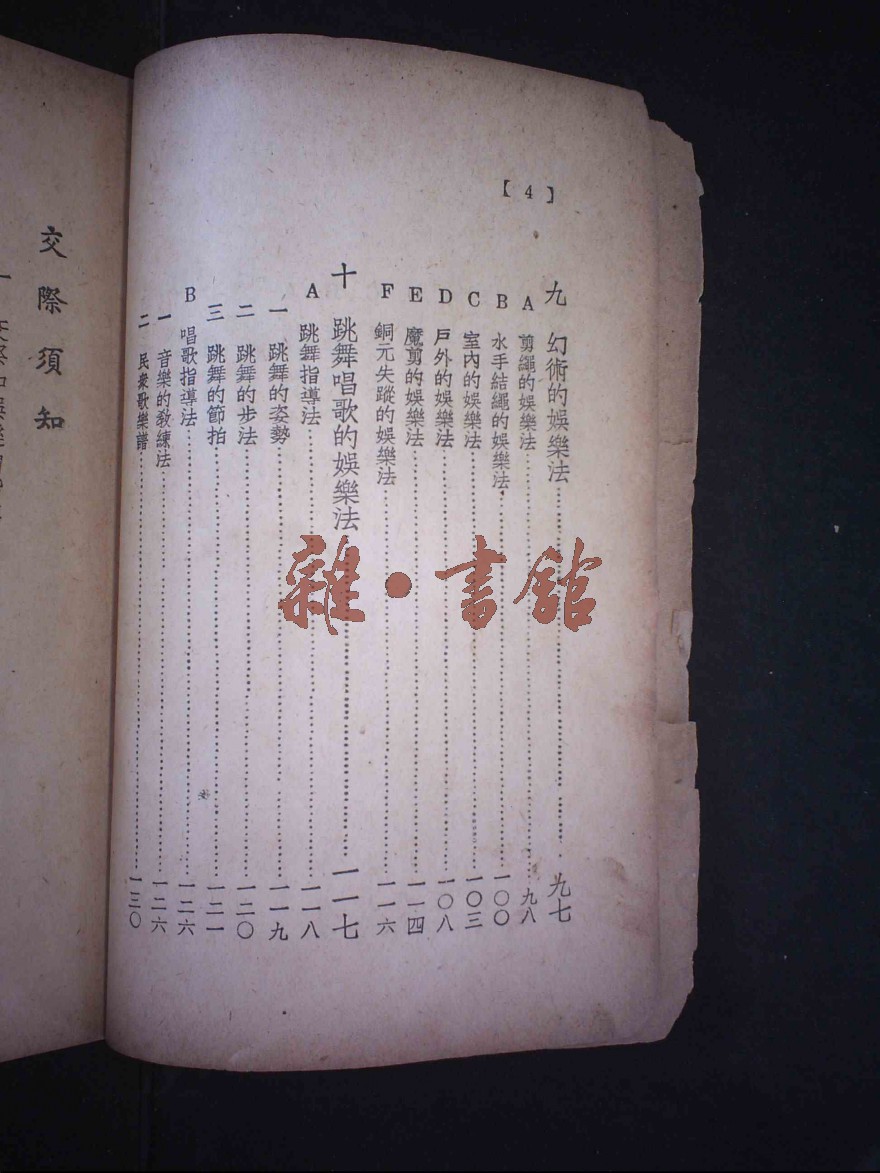 【4】
九 幻術的娛樂法……九七
A 剪繩的娛樂法……九八
B 水手結繩的娛樂法……一〇〇
C 室內的娛樂法……一〇三
D 戶外的娛樂法……一〇八
E 魔剪的娛樂法……一一四
F 銅元失蹤的娛樂法……一一六
十 跳舞唱歌的娛樂法……一一七
A 跳舞指導法……一一八
一 跳舞的姿勢……一一九
二 跳舞的步法……一二〇
三 跳舞的節拍……一二一
B 唱歌指導法……一二六
一 音樂的教練法……一二六
二 民衆歌樂譜……一三〇
交際須知
雜·書館